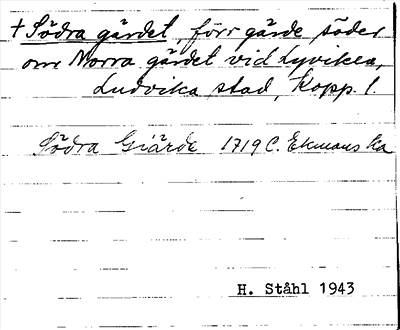 † Södra gärdet, förr gärde söder
om Norra gärdet vid Lyviken,
Ludvika stad, Kopp. l.
Södra Giärde 1719 C. Ekmans ka
H. Ståhl 1943